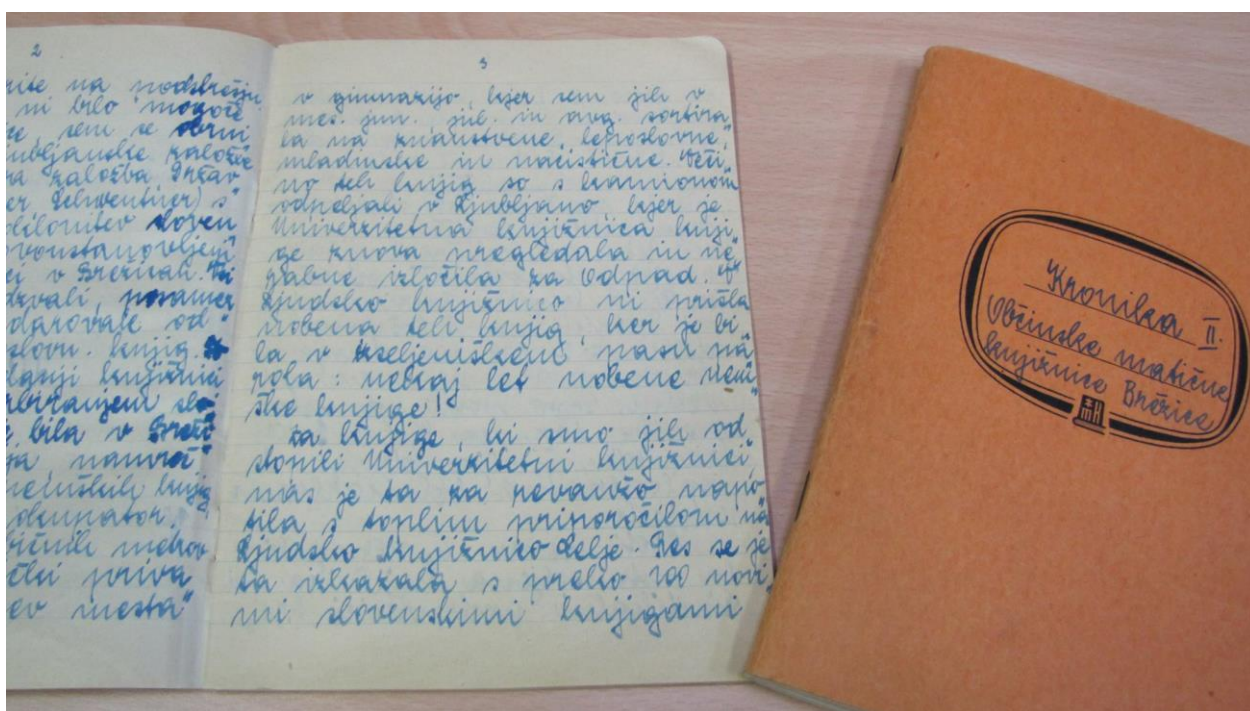 2
na podstrešju
ni bilo mogoče
sem se obrni
ljubljanske založbe
založba Držav
er Schwentner) s
poklonitev sloven
ovoustanovljeni
ci v Brežicah.
posamez
darovale od
slovn. knjig.
knjižnici
zbiranjem slo
bila v Breži
ga, navreč"
nemških knjig
okupator,
bičnih metrov
priva
ev mesta"
3
v gimnazijo kjer sem jih v
mes. jun. jul. in avg. sortira
la na znanstvene, leposlovne,
mladinske in nacistične. Veči
no teh knjig so s kamionom
odpeljali v Ljubljano kjer je
Univerzitetna knjižnica knji
ge znova pregledala in ne
rabne izločila za odpad. V
Ljudsko knjižnico ni prišla
nobena teh knjig, ker je bi
la v izseljeniškem pasu pa
rola: nekaj let nobene nem
ške knjige!
Za knjige, ki smo jih od
stopili Univerzitetni knjižnici,
nas je ta za povračilo napo
tila s toplim priporočilom na
Ljudsko knjižnico Celje. Res se je
ta izkazala s preko 100 novi
mi slovenskimi knjigami
Kronika II.
Občinske matične
knjižnice Brežice